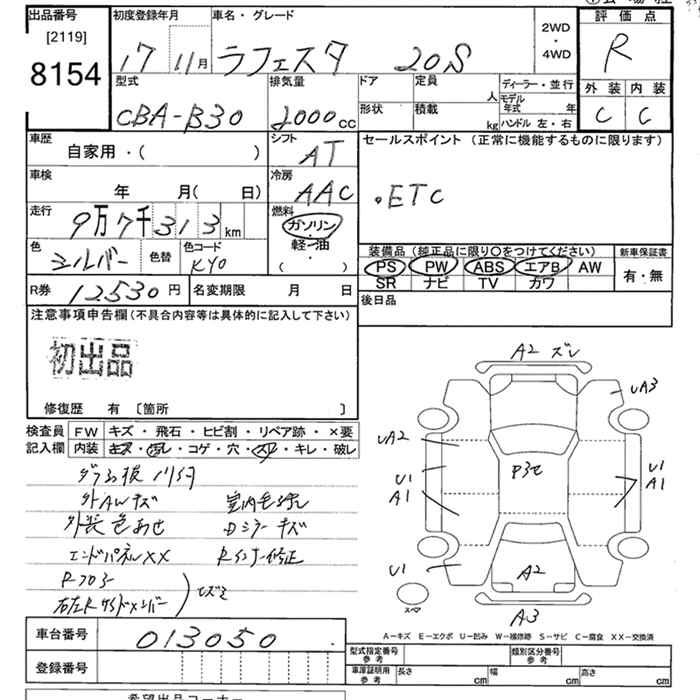 出品番号
[2119]
8154
初度登録年月
17 11月
車名・グレード
ラフェスタ 20S
2WD
・
4WD
評価点
R
外装 内装
C C
型式
CBA-B30
排気量
2000cc
ドア
形状
定員 人
積載 kg
ディーラー・並行
モデル年式 年
ハンドル 左・右
車歴
自家用・( )
シフト
AT
車検
年 月( 日)
冷房
AAC
走行
9万7千313km
燃料
ガソリン・
軽・油
( )
色
シルバー
色替
色コード
KY0
R券 12530円
名変期限 月 日
セールスポイント (正常に機能するものに限ります)
・ETC
装備品(純正品に限り○をつけてください)
PS PW ABS エアB AW
SR ナビ TV カワ
新車保証書
有・無
後日品
注意事項申告欄(不具合内容等は具体的に記入して下さい)
初出品
修復歴 有 〔箇所 〕
検査員記入欄
FW キズ・飛石・ヒビ割・リペア跡・×要
内装 キズ・汚レ・コゲ・穴・スレ・キレ・破レ
外AWキズ
外装色あせ
Dミラーキズ
エンドパネルXX
車台番号 013050
登録番号
A2 ズレ
UA3
UA2
U1
A1
P3セ
U1
A1
U1
A2
スペア
A3
A-キズ E-エクボ U-凹み W-補修跡 S-サビ C-腐食 XX-交換済
型式指定番号 参考
類別区分番号 参考
車庫証明用 参考
長さ cm
幅 cm
高さ cm
希望出品コーナー